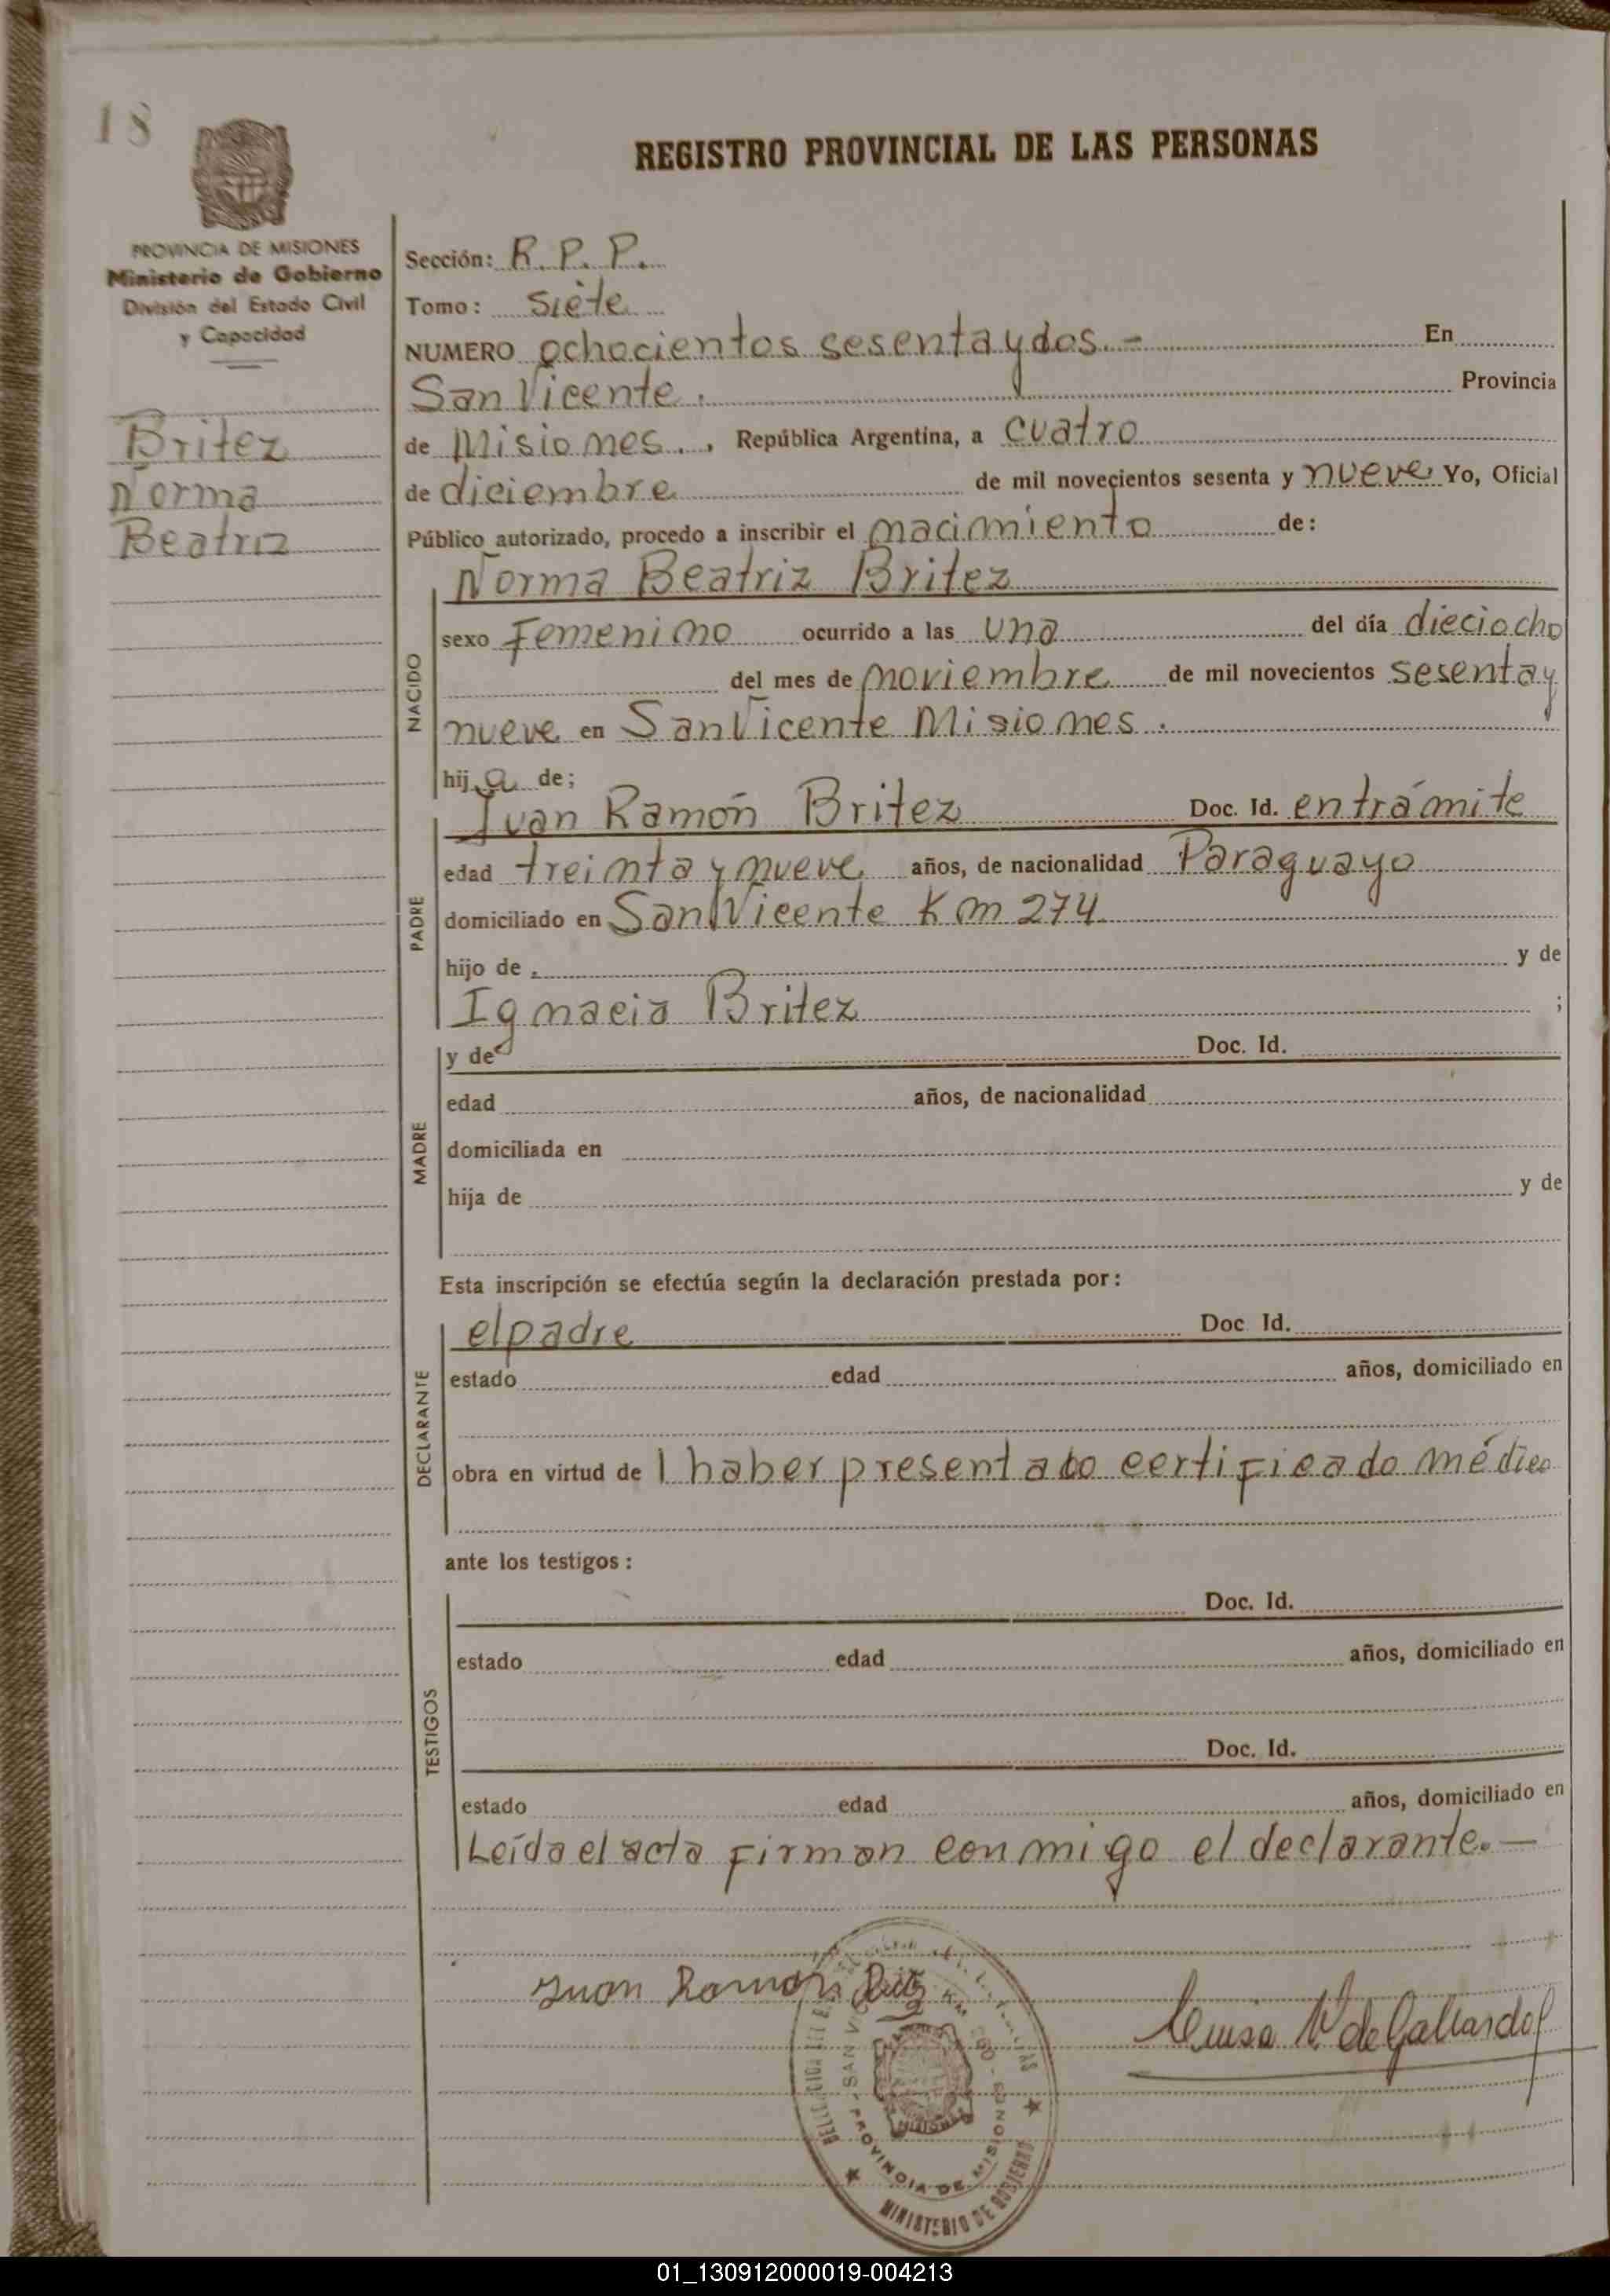 18
REGISTRO PROVINCIAL DE LAS PERSONAS
PROVINCIA DE MISIONES
Ministerio de Gobierno
División del Estado Civil
y Capacidad
Britez
Norma
Beatriz
Sección: R. P. P.
Tomo: siete
NUMERO ochocientos sesenta y dos. - En
San Vicente. Provincia
de Misiones., República Argentina, a cuatro
de diciembre de mil novecientos sesenta y nueve Yo, Oficial
Público autorizado, procedo a inscribir el nacimiento de:
NACIDO
Norma Beatriz Britez
sexo Femenino ocurrido a las una del día dieciocho
del mes de noviembre de mil novecientos sesenta y
nueve en San Vicente Misiones.
hija de;
PADRE
Juan Ramón Britez Doc. Id. en trámite
edad treinta y nueve años, de nacionalidad Paraguayo
domiciliado en San Vicente Km 274
hijo de y de
Ignacia Britez ;
MADRE
y de Doc. Id.
edad años, de nacionalidad
domiciliada en
hija de y de
Esta inscripción se efectúa según la declaración prestada por:
DECLARANTE
el padre Doc Id.
estado edad años, domiciliado en
obra en virtud de l haber presentado certificado médico
ante los testigos:
TESTIGOS
Doc. Id.
estado edad años, domiciliado en
Doc. Id.
estado edad años, domiciliado en
Leída el acta firman conmigo el declarante. —
Juan Ramon
Luisa de Gallardo
SAN VICENTE
PROVINCIA DE MISIONES
MINISTERIO DE GOBIERNO
01_130912000019-004213